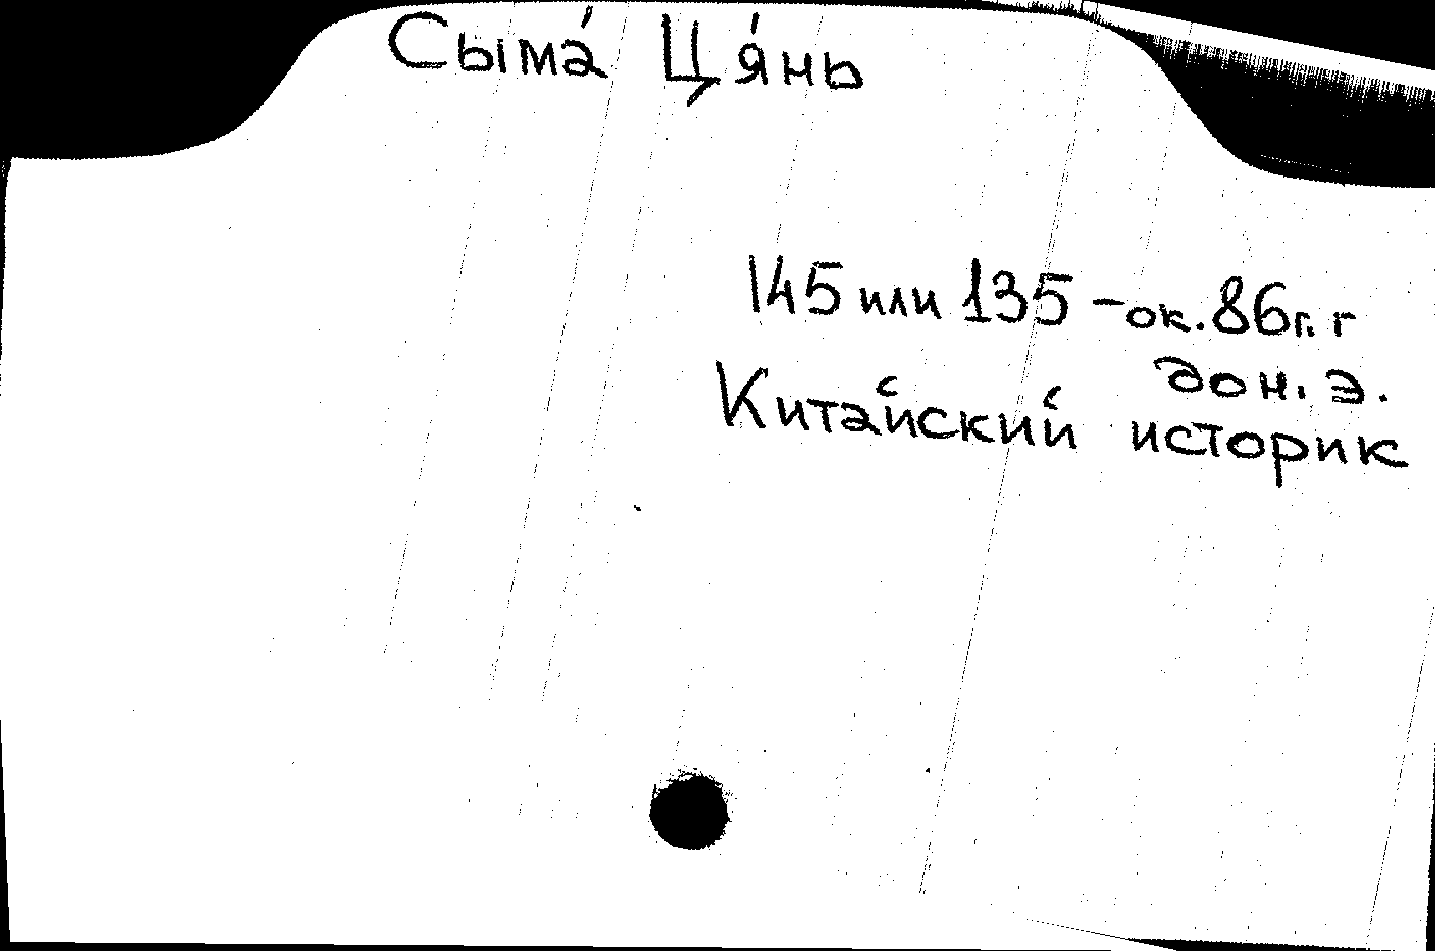 Сыма́ Ця́нь
145 или 135 – ок. 86 г. г
до н. э.
Китайский историк